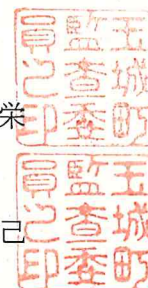 玉城町
監査委
員之印
栄
玉城町
監査委
員之印
己